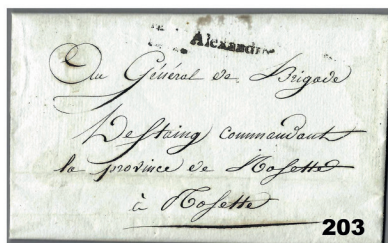 Alexandrie
Au Général de Brigade
Destaing commandant
la province de Rosette
à Rosette
203